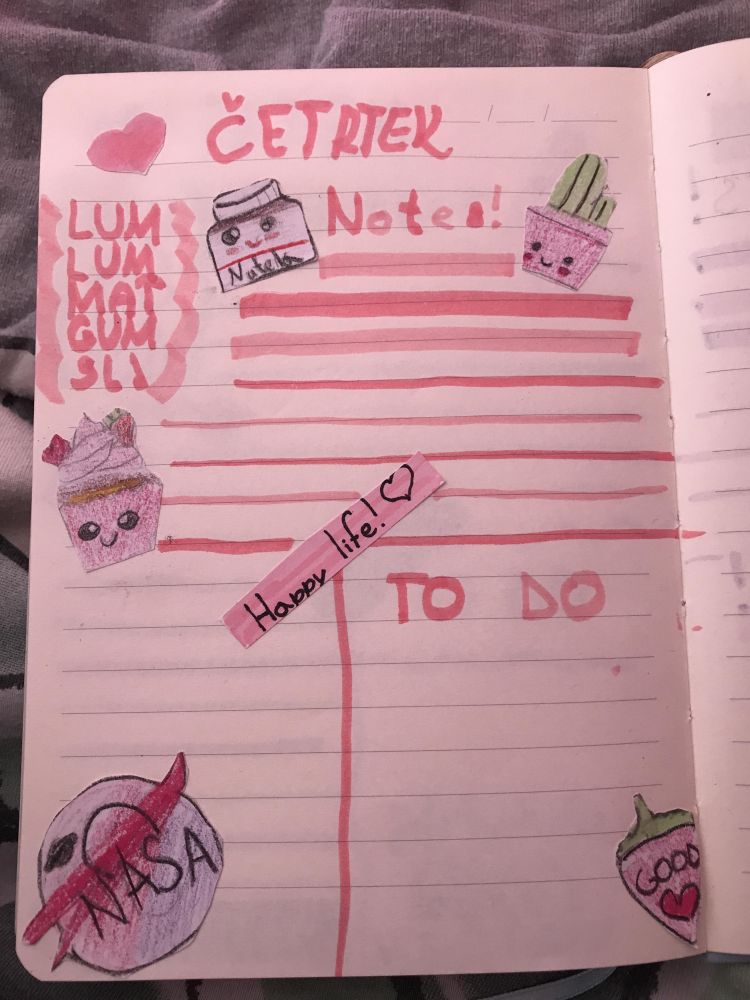 ČETRTEK
LUM
LUM
MAT
GUM
SLJ
Nutela
Notes!
Happy life!
TO DO
NASA
GOOD